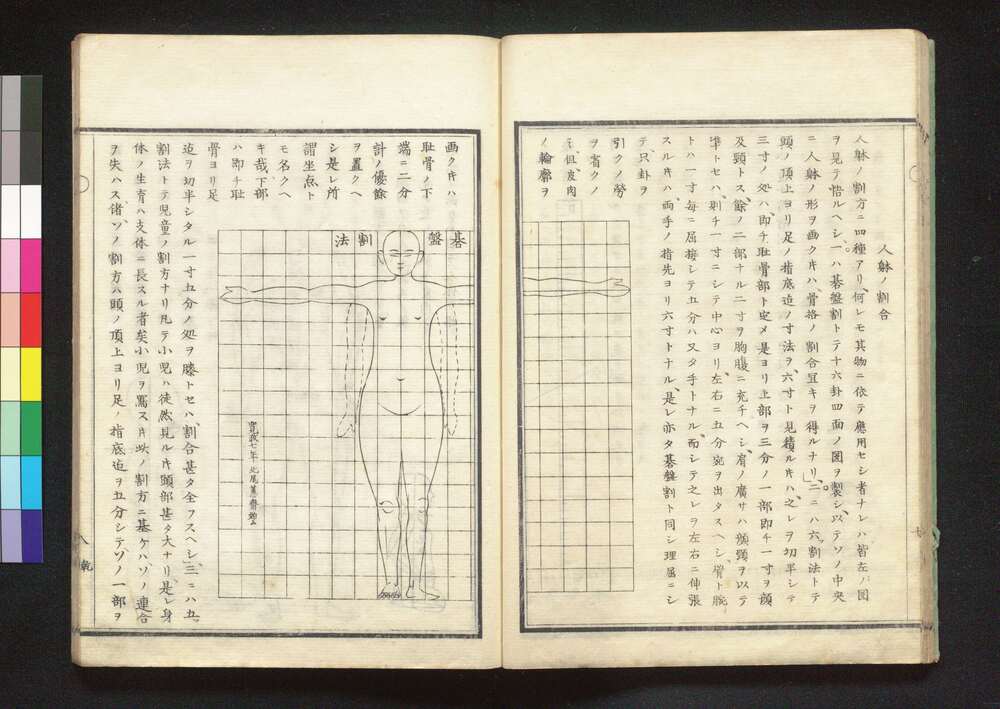 人躰ノ割合
人躰ノ割方ニ四種アリ、何レモ其物ニ依テ應用セシ者ナレハ皆左ノ図
ヲ見テ悟ルヘシ。一ハ碁盤割トテ十六卦四面ノ図ヲ製シ、以テソノ中央
ニ人躰ノ形ヲ画クキハ、骨挌ノ割合宜キヲ得ルナリ」、二ニハ六割法トテ
頭ノ頂上ヨリ足ノ指底迠ノ寸法ヲ、六寸ト見積ルキハ、之レヲ切半シテ
三寸ノ処ハ、即チ耻骨部ト定メ是ヨリ上部ヲ三分ノ一部即チ一寸ヲ顔
及頸トス、餘ノ二部ナル二寸ヲ胸腹ニ充ヘシ、肩ノ廣サハ顔頸ヲ以テ
準トセハ、則チ一寸ニシテ中心ヨリ左右ニ五分宛ヲ出タスヘシ、臂ト腕
トハ一寸毎ニ屈接シテ五分ハ又タ手トナル、而シテ之レヲ左右ニ伸張
スルキハ、両手ノ指先ヨリ六寸トナル、是レ亦タ碁盤割ト同シ理屈ニシ
テ、只卦ヲ
引クノ勞
ヲ省クノ
ミ、但、皮肉
ノ輪廓ヲ
画クキハ
耻骨ノ下
端ニ二分
計ノ優餘
ヲ置クヘ
シ是レ所
謂坐点ト
モ名クヘ
キ哉、下部
ハ即チ耻
骨ヨリ足
迠ヲ切半シタル一寸五分ノ処ヲ膝トセハ、割合甚タ全フスヘシ」、三ニハ五
割法トテ児童ノ割方ナリ凡テ小児ハ徒然見ルキ頭部甚タ大ナリ、是レ身
体ノ生育ハ支体ニ長スル者矣小児ヲ寫スキ此ノ割方ニ基ケハソノ連合
ヲ失ハス、ソノ割方ハ頭ノ頂上ヨリ足ノ指底迠ヲ五分シテ、ソノ一部ヲ
碁盤割法
七
八
乾